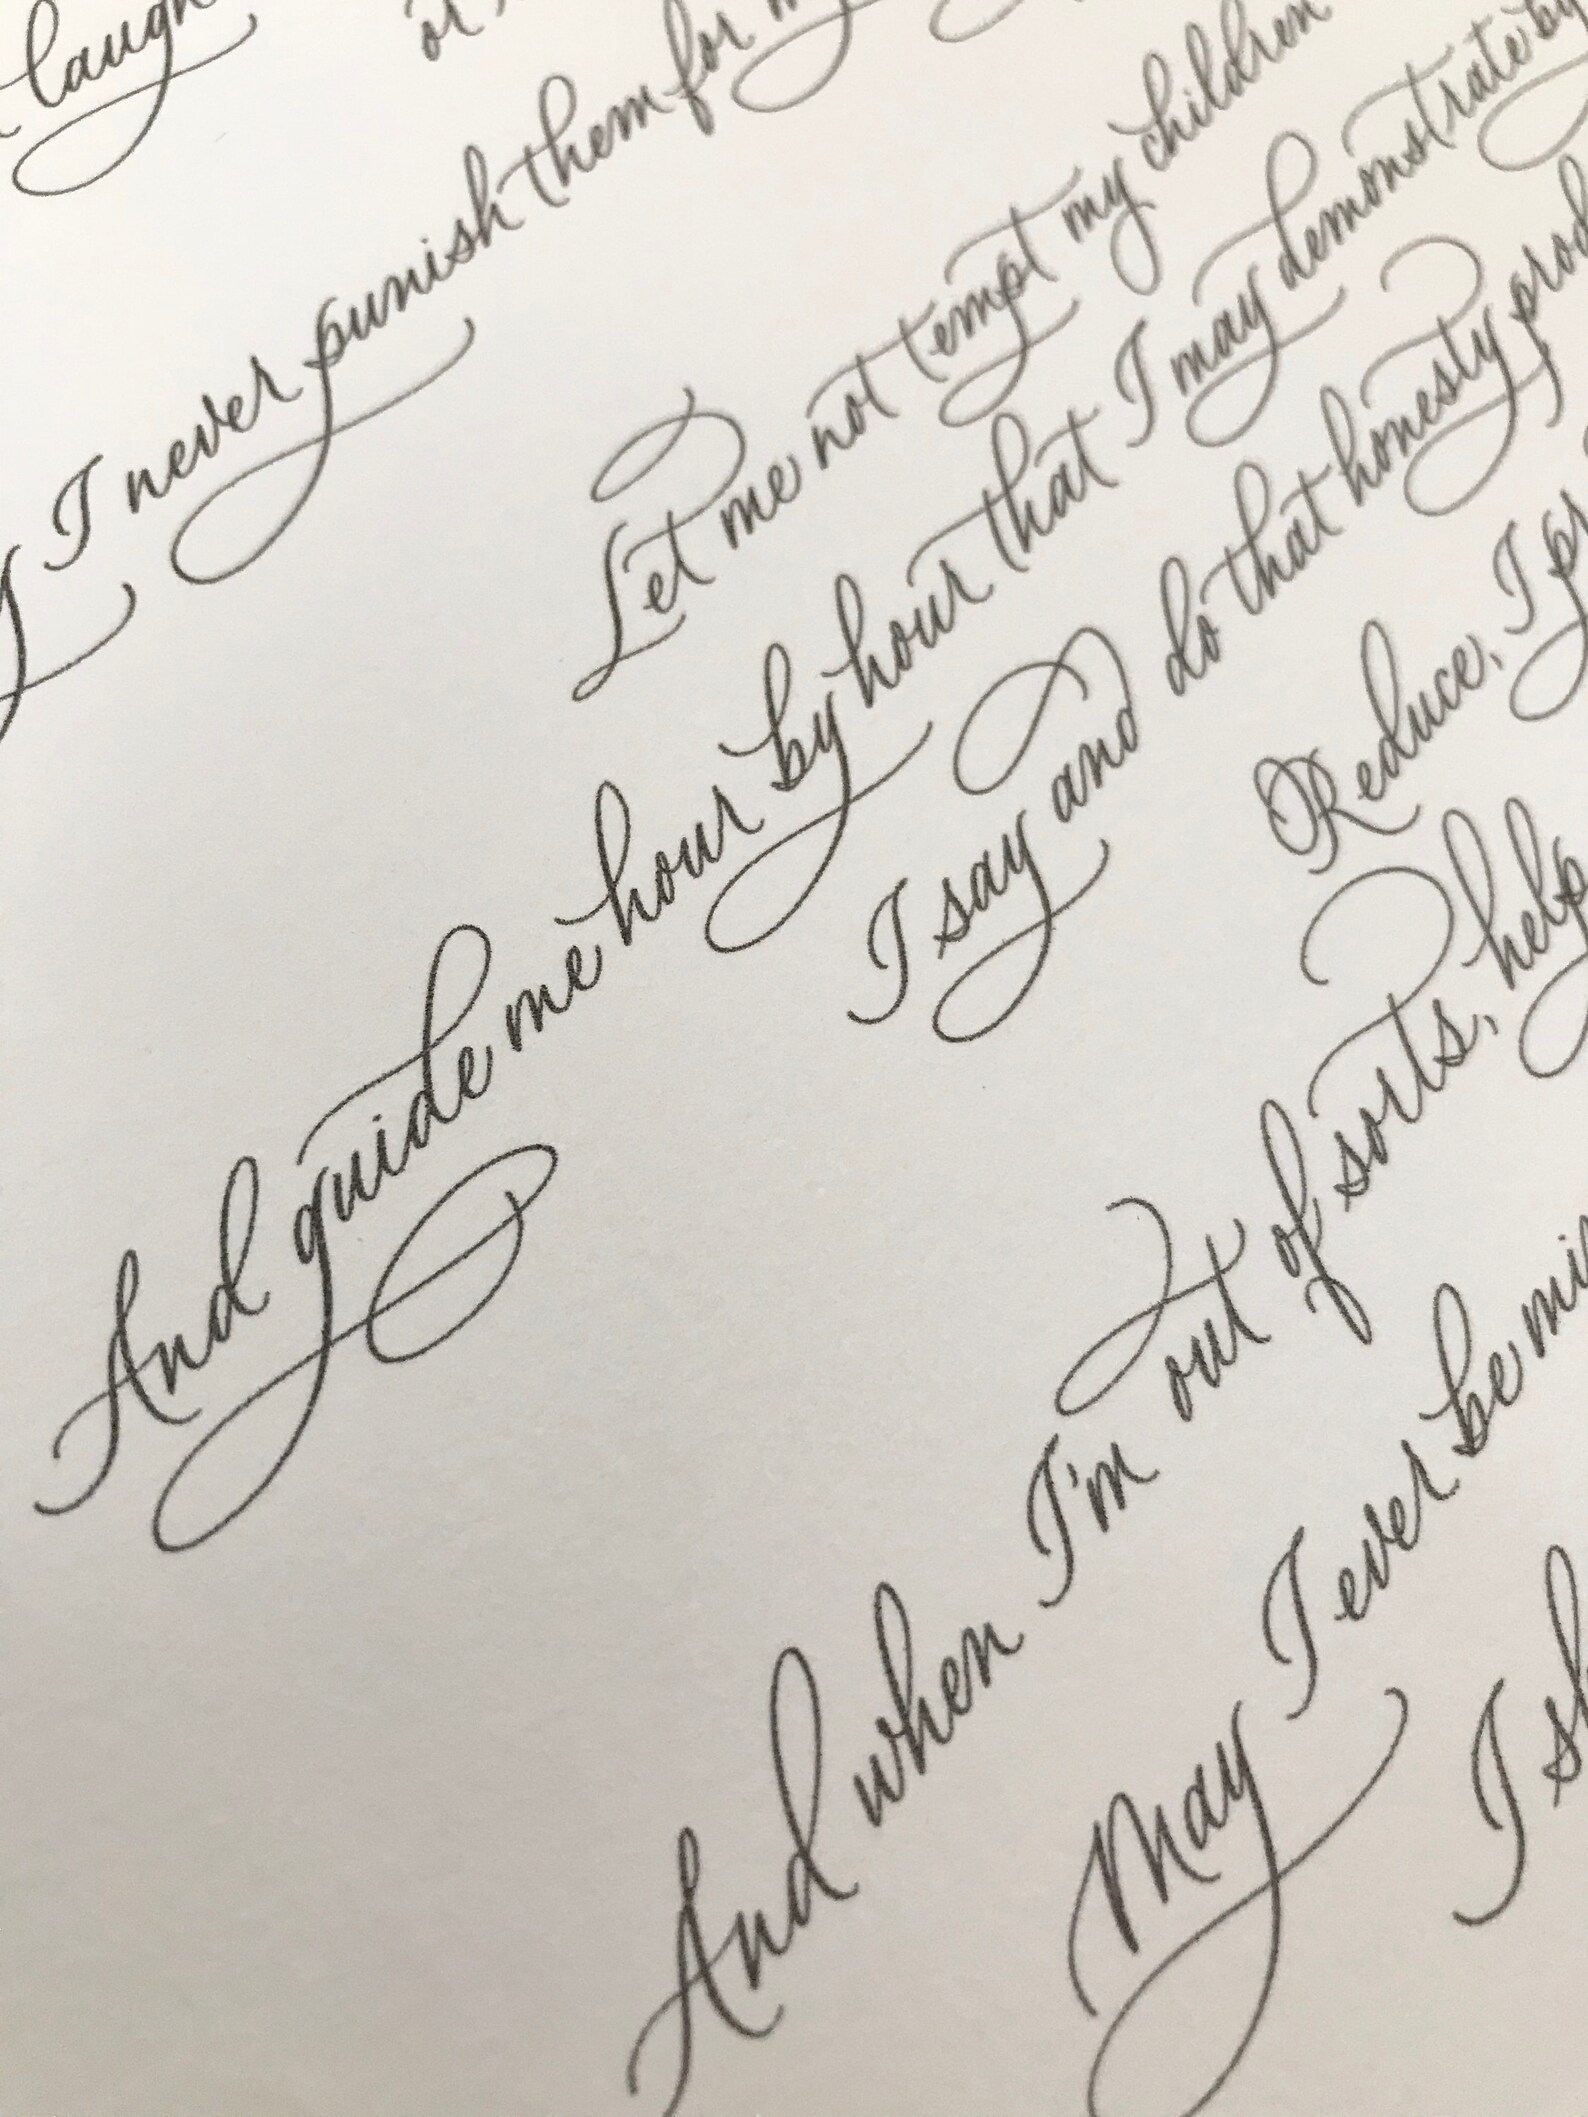 laugh
or
I never punish them for
Let me not tempt my children
And guide me hour by hour that I may demonstrate by
I say and do that honesty
Reduce, I
And when I'm out of sorts, help
May I ever be
I